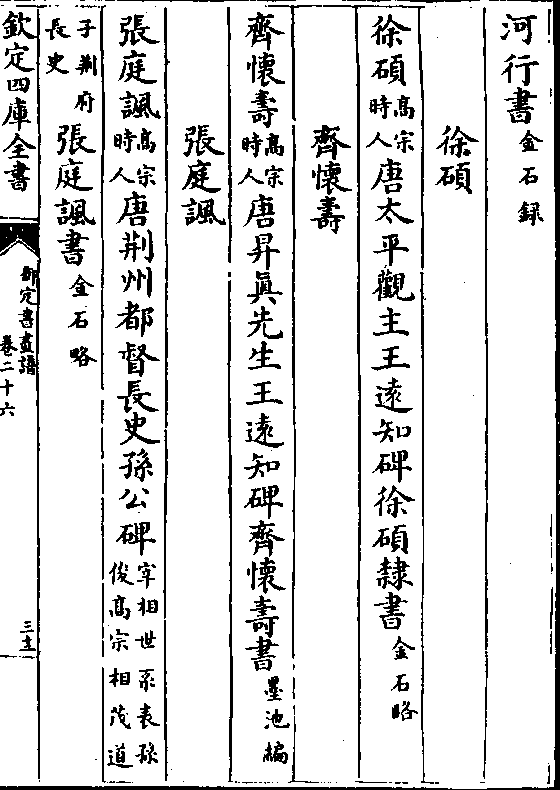 河行書金石録
徐碩
徐碩高宗時人唐太平觀主王遠知碑徐碩隸書金石略
齊懷壽
齊懷壽高宗時人唐昇真先生王遠知碑齊懷壽書墨池編
張庭諷
張庭諷高宗時人唐荆州都督長史孫公碑宰相世系表孫俊高宗相茂道
子荆府長史張庭諷書金石略
欽定四庫全書
御定書畫譜
卷二十六